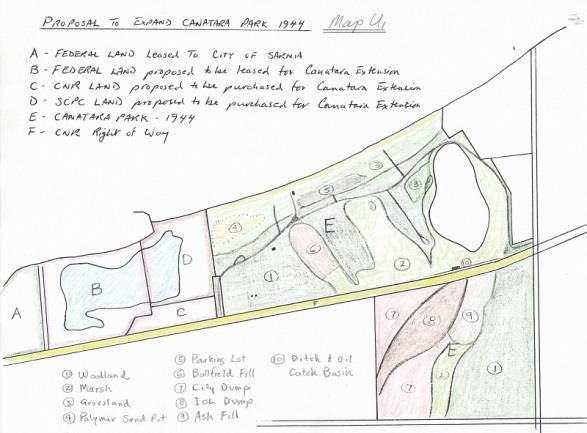 PROPOSAL TO EXPAND CANATARA PARK 1944 Map U1
A - FEDERAL LAND Leased TO CITY OF SARNIA
B - FEDERAL LAND proposed to be leased for Canatara Extension
C - CNR LAND proposed to be purchased for Canatara Extension
D - SCPC LAND proposed to be purchased for Canatara Extension
E - CANATARA PARK - 1944
F - CNR Right of Way
3
5
3
4
E
6
D
1
2
B
10
A
C
F
7
8
9
E
1
7
2
1 Woodland
2 Marsh
3 Grassland
4 Polymer Sand Pit
5 Parking Lot
6 Ballfield Fill
7 City Dump
8 IOL Dump
9 Ash Fill
10 Ditch & Oil
Catch Basin